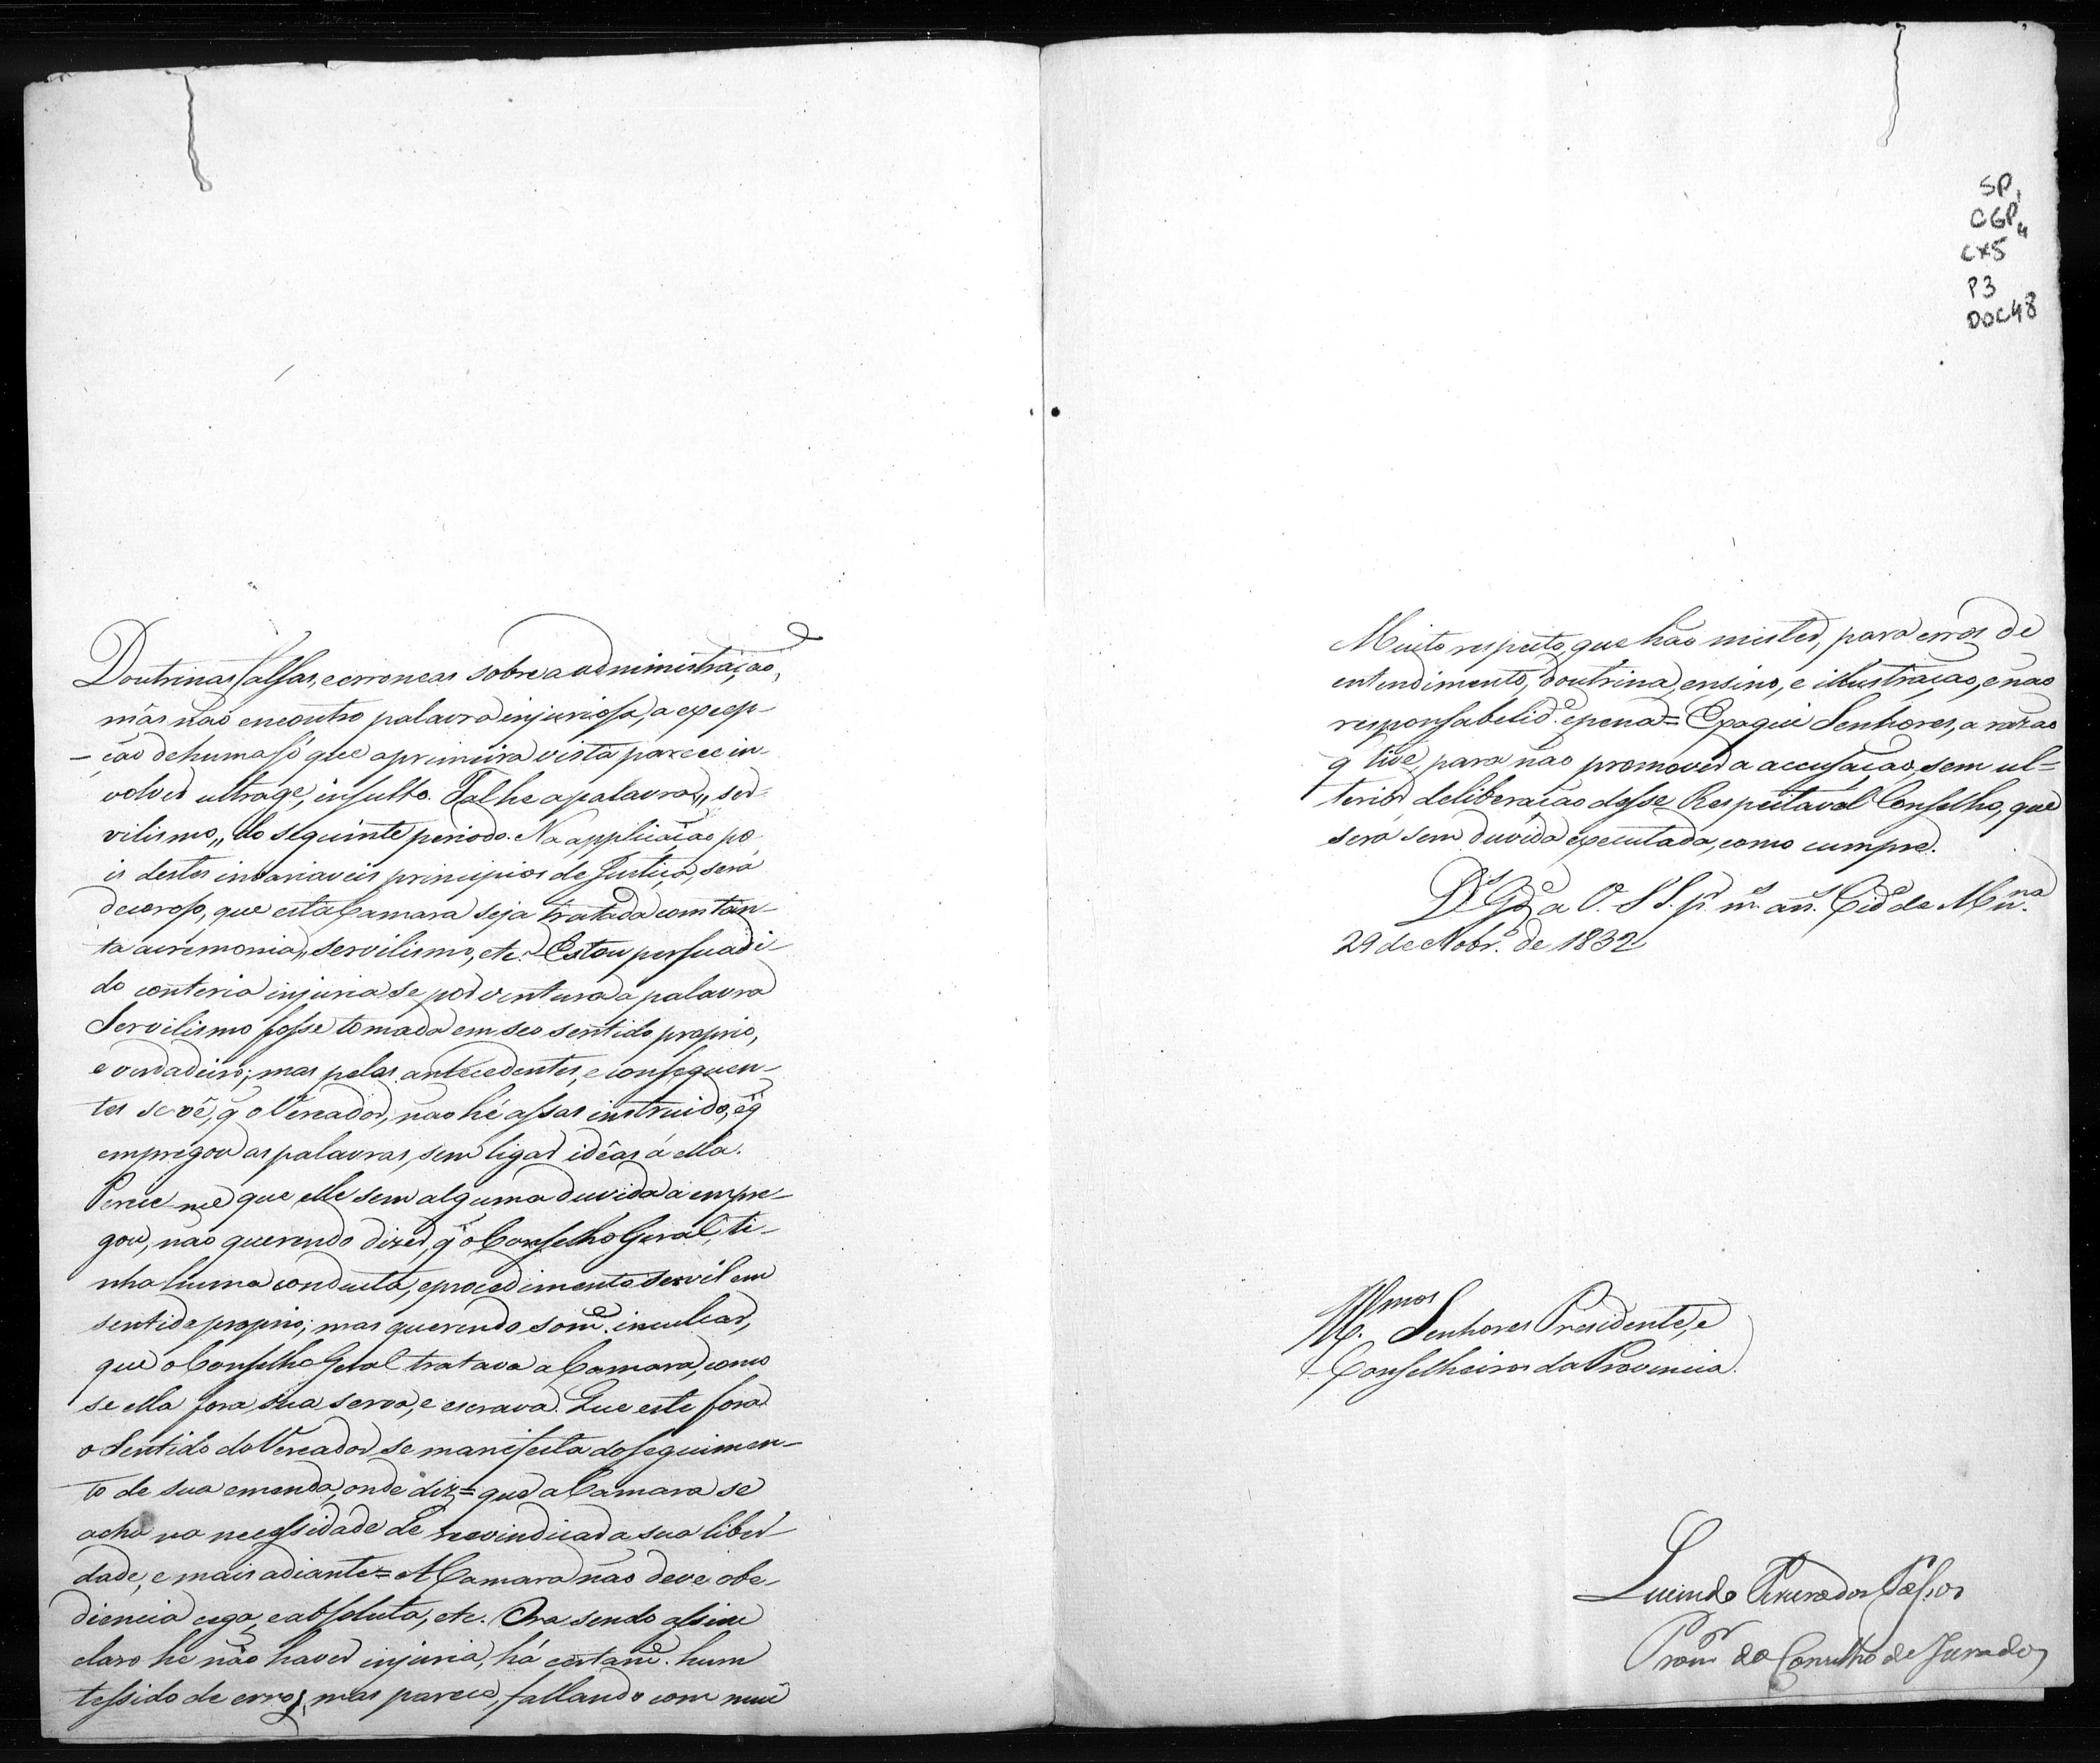 Doutrinas falsas, e erroneas sobre a administração,
mâs não encontro palavra injuriosa, a excep-
-ção de huma só que a primeira vista parece in-
volver ultrage, insulto. Tal he a palavra,, ser-
vilismo,, do seguinte periodo. Na applicação po
is destes invariaveis principios de Justiça, será
decoroso, que esta Camara seja tratada com tan-
ta acremonia, servilismo, etc. Estou persuadi-
do conteria injuria se por ventura a palavra
Servilismo fosse tomada em seo sentido proprio,
e verdadeiro; mas pelos antecedentes, e consequen-
tes se vê, q̃ o Vereador, não hé assas instruido, e q̃
empregou as palavras, sem ligar idêas á ella.
Parece-me que elle sem alguma duvida a empre-
gou, não querendo dizer, q̃ o Conselho Geral, ti-
nha huma conducta, e procedimento servil em
sentido proprio; mas querendo som.e inculcar,
que o Conselho Geral tratava a Camara, como
se ella fora sua serva, e escrava. Que este fora
o Sentido do Vereador se manifesta do seguimen-
to de sua emenda, onde diz = que a Camara se
acha na necessidade de revindicar a sua liber-
dade, e mais adiante = A Camara não deve obe-
diencia cega, e absoluta, etc. Ora sendo assim
claro he não haver injuria, há certam.e hum
tessido de erros, mas parece, fallando com mui
SP,
CGP4
CX5
P3
DOC48
Muito respeito, que hão mister, para erros de
entendimento, doutrina, ensino, e illustração, e não
responsabelid.e e pena = Eis aqui Senhores, a razao
q̃ tive, para não promover a accusação, sem ul=
terior deliberação desse Respeitavel Conselho, que
será sem duvida executada, como cumpre.
D.s G.e a V. S S. p.r m.s an.s Cid.e de Mn.na
29 de Nobr.o de 1832
Ill.mos Senhores Presidente, e
Conselheiros da Provincia.
Lucindo Passos
Prom.or do Conselho de Jurados